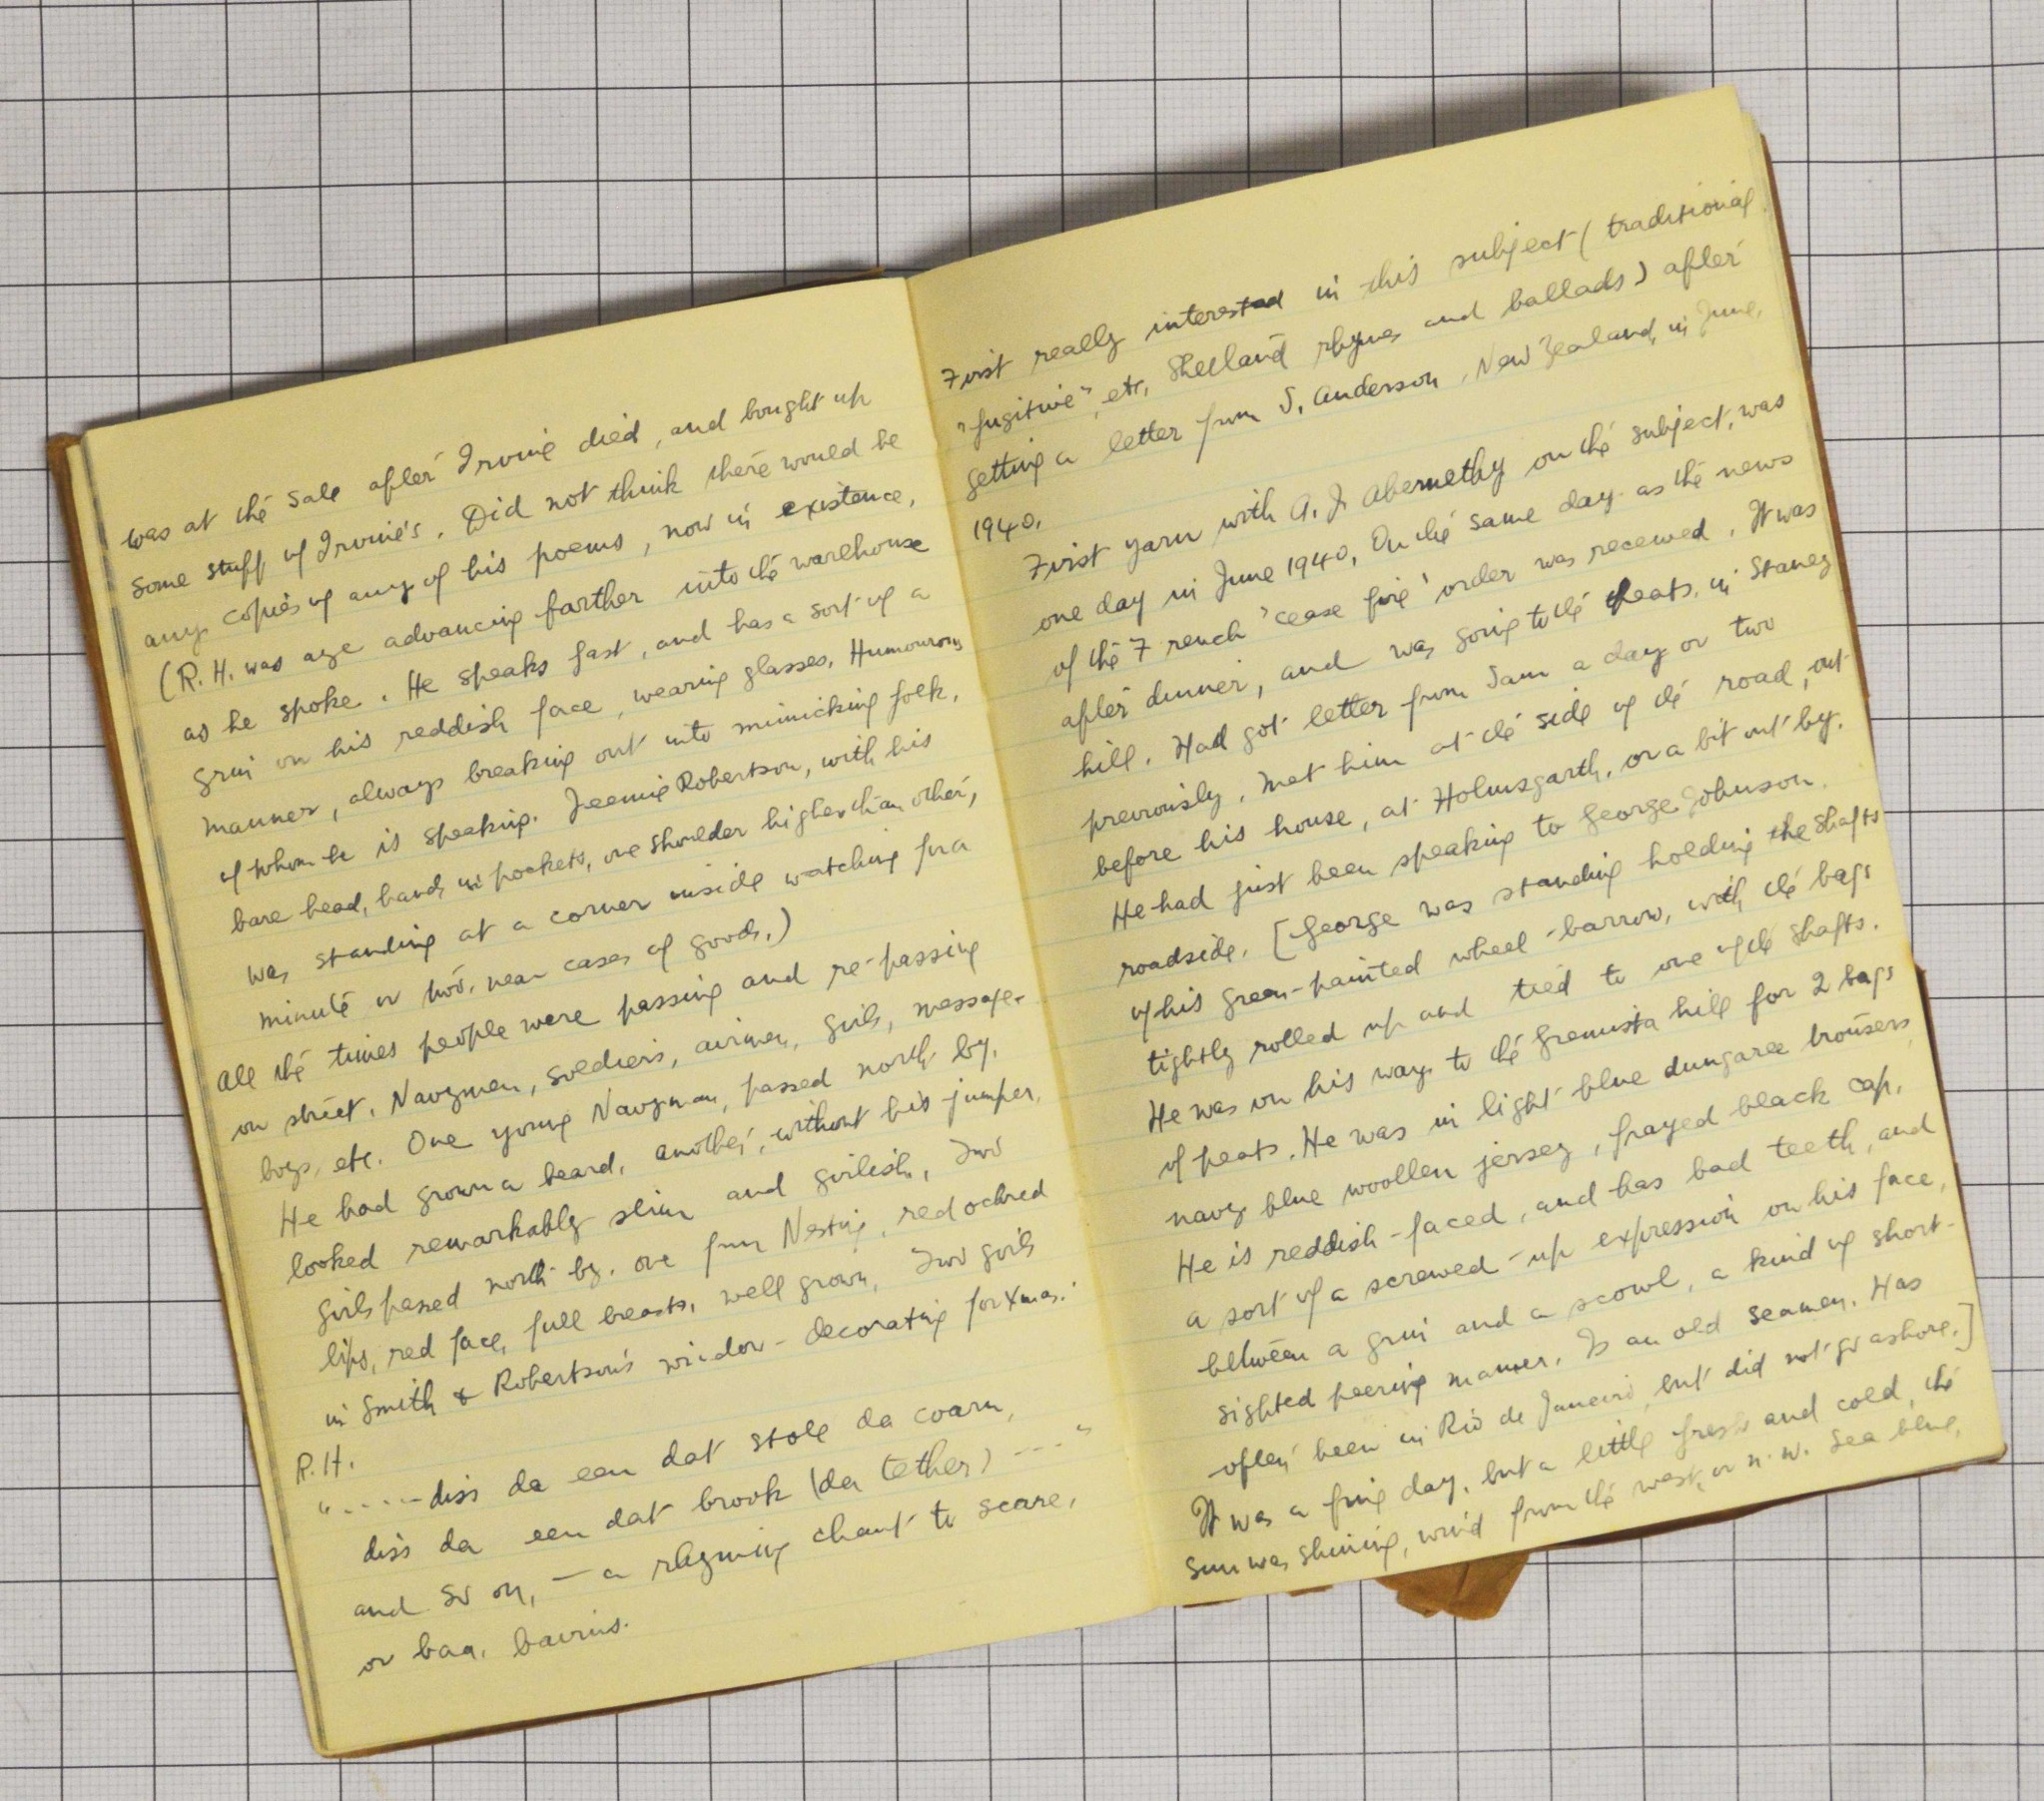 was at the sale after Irvine died, and bought up
some stuff of Irvine's. Did not think there would be
any copies of any of his poems, now in existence.
(R. H. was aye advancing farther into the warehouse
as he spoke. He speaks fast, and has a sort of a
grin on his reddish face, wearing glasses. Humourous
manner, always breaking out into mimicking folk,
of whom he is speaking. Jeemie Robertson, with his
bare head, hands in pockets, one shoulder higher than other,
was standing at a corner inside watching for a
minute or two, near cases of goods.)
All the times people were passing and re-passing
on street. Navymen, soldiers, airmen, girls, message-
boys, etc. One young Navyman, passed north by.
He had grown a beard, another, without his jumper,
looked remarkably slim and girlish. Two
girls passed north by. one from Nesting, red ochred
lips, red face, full breasts, well grown. Two girls
in Smith & Robertson's window - decorating for Xmas.
R.H.
"..... diss da een dat stole da coarn,
diss da een dat brook (da tether) ---"
and so on, — a rhyming chant to scare,
or baa. bairns.
First really interested in this subject (traditional,
"fugitive", etc, Shetland rhymes and ballads) after
getting a letter from S. Anderson, New Zealand, in June,
1940.
First yarn with A. J. Abernethy on the subject, was
one day in June 1940. On the same day as the news
of the French 'cease fire' order was received. It was
after dinner, and was going to the peats, in Staney
hill. Had got letter from Sam a day or two
previously. Met him at the side of the road, out
before his house, at Holmsgarth, or a bit out by.
He had just been speaking to George Johnson,
roadside. [George was standing holding the shafts
of his green-painted wheel-barrow, with the bags
tightly rolled up and tied to one of the shafts.
He was on his way to the Gremista hill for 2 bags
of peats. He was in light blue dungaree trousers,
navy blue woollen jersey, frayed black cap.
He is reddish-faced, and has bad teeth, and
a sort of a screwed-up expression on his face,
between a grin and a scowl, a kind of short-
sighted peering manner. Is an old seaman. Has
often been in Rio de Janeiro, but did not go ashore.]
It was a fine day, but a little fresh and cold, the
sun was shining, wind from the west, or n.w. Sea blue,